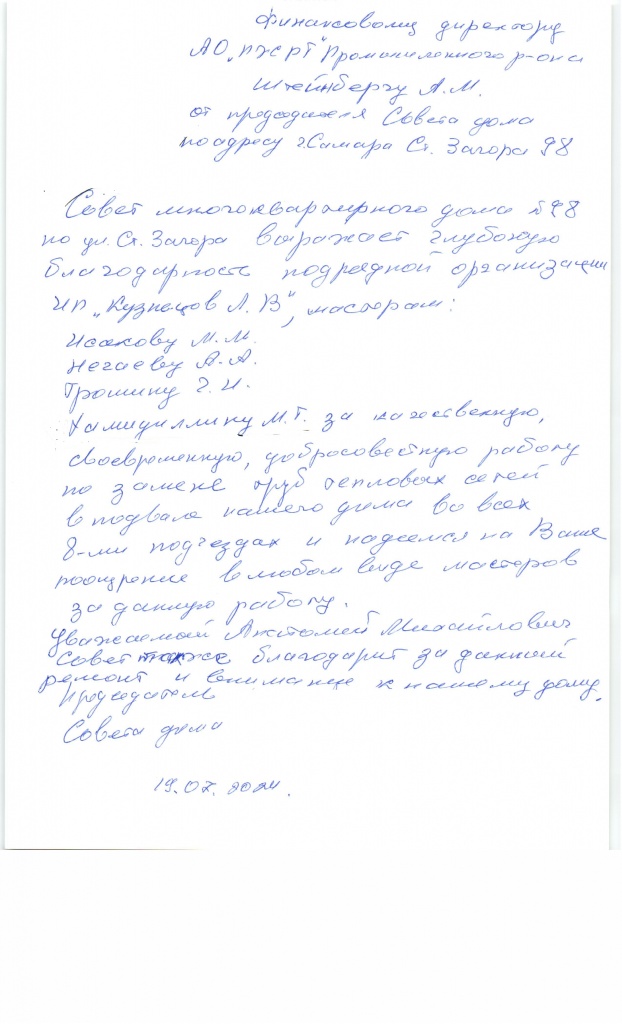 финансовому директору
АО „ПЖРТ" Промышленного р-она
Штейнбергу А.М.
от председателя Совета дома
по адресу г. Самара Ст. Загора 98
Совет многоквартирного дома №98
по ул. Ст. Загора выражает глубокую
благодарность подрядной организации
ИП „Кузнецов Л.В", мастерам:
Исакову М.М.
Негаеву А.А.
Грошину Г.И.
Хамидуллину М.Г. за качественную,
своевременную, добросовестную работу
по замене труб тепловых сетей
в подвале нашего дома во всех
8-ми подъездах и надеемся на Ваше
поощрение в любом виде мастеров
за данную работу.
Уважаемый Анатолий Михайлович
Совет также благодарит за данный
ремонт и внимание к нашему дому.
Председатель
Совета дома
19.07.2024.